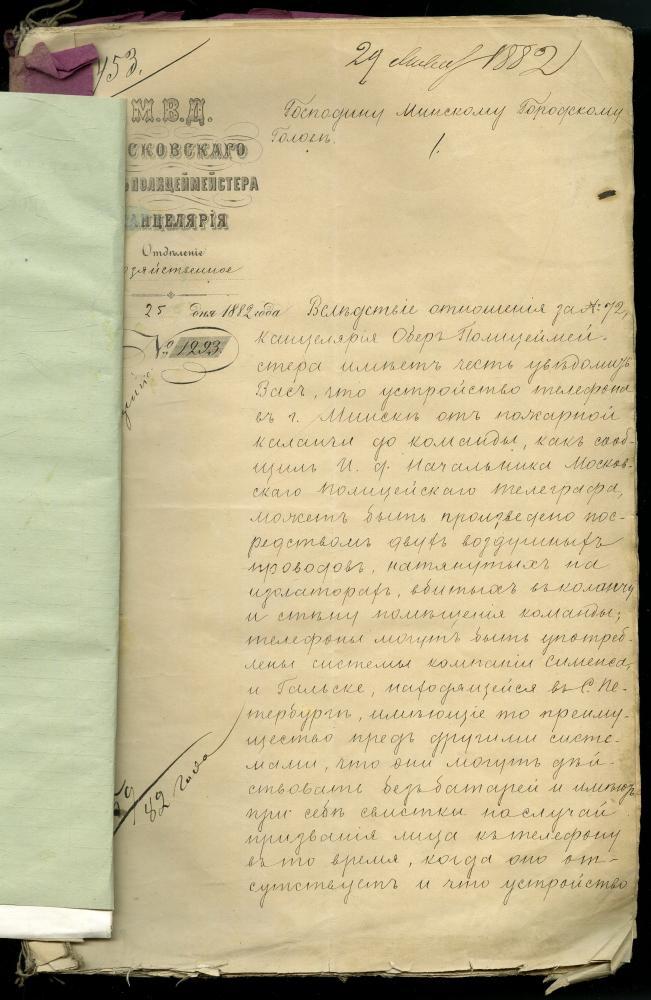 153.
29 Января 1882
М.В.Д.
СКОВСКАГО
ПОЛИЦЕЙМЕЙСТЕРА
КАНЦЕЛЯРІЯ
Отдѣленіе
озяйственное
25 дня 1882 года
№ 1293
Господину Минскому Городскому
Головѣ.
1.
Вслѣдствіе отношенія за № 72,
канцелярія Оберъ Полицеймей-
стера имѣетъ честь увѣдомить
Васъ, что устройство телефона
въ г. Минскѣ отъ пожарной
каланчи до команды, какъ сооб-
щилъ И. ф. Начальника Москов-
скаго полицейскаго телеграфа,
можетъ быть произведено пос-
редствомъ двухъ воздушныхъ
проводовъ, натянутыхъ на
изолаторахъ, вбитыхъ въ коланчу
и стѣну помѣщенія команды;
телефоны могутъ быть употреб-
лены системы компаніи Сименса
и Гальске, находящейся въ С. Пе-
тербургѣ, имѣющіе то преиму-
щество предъ другими систе-
мами, что они могутъ дѣй-
ствовать безъ батарей и имѣютъ
при себѣ свистки на случай
призванія лица къ телефону
въ то время, когда оно от-
сутствуетъ и что устройство
82 года